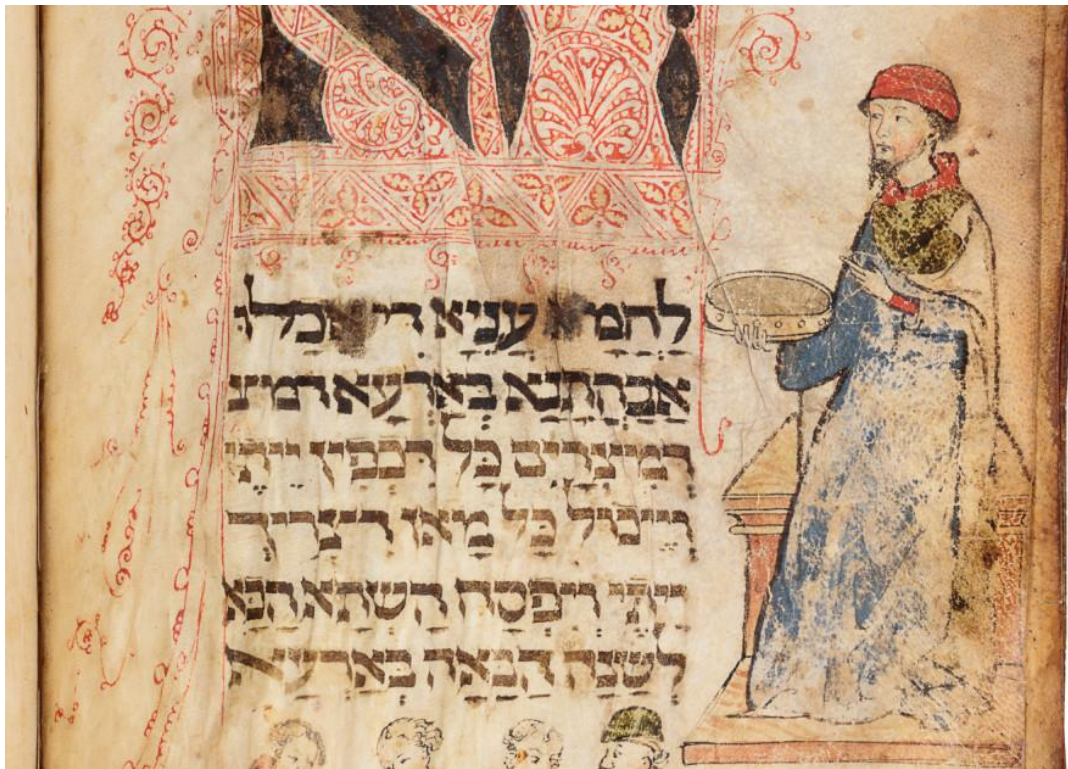 לחמא עניא די אכלו
אבהתנא בארעא דמצ
דמצרים כל דכפין ייתי
וייכול כל מאן דצריך
ייתי ויפסח השתא הכא
לשנה הבאה בארעא